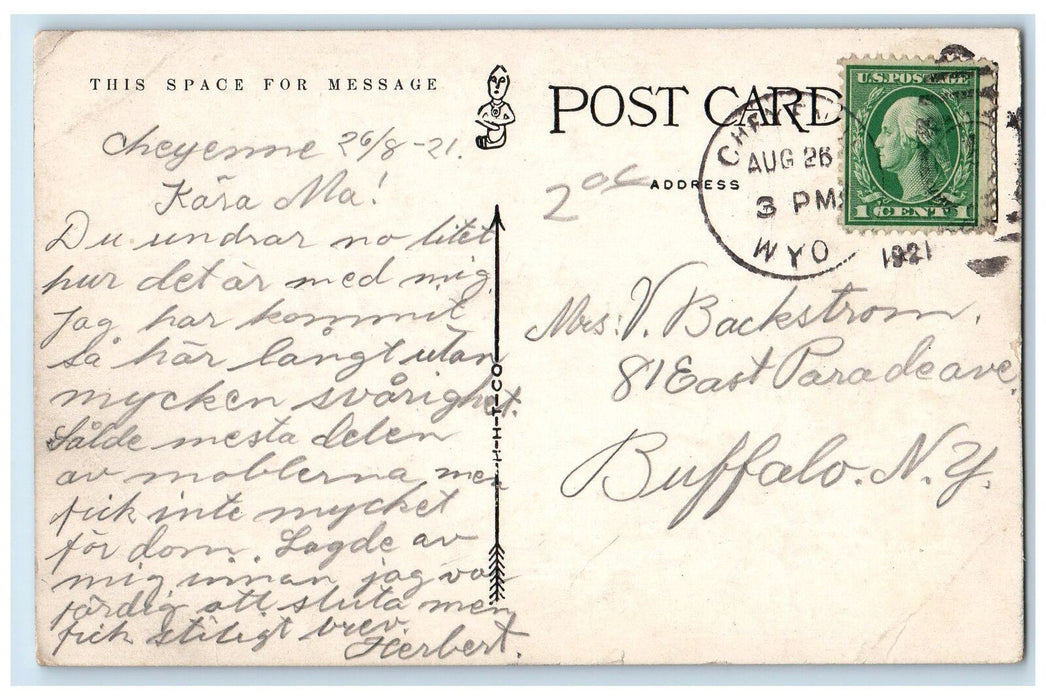 THIS SPACE FOR MESSAGE
POST CARD
ADDRESS
U.S. POSTAGE
1 CENT 1
AUG 26
3 PM
WYO
1921
20¢
H-H-T-CO
Cheyenne 26/8-21.
Kära Ma!
Du undrar no litet
hur det är med mig.
Jag har kommit
så här långt utan
mycken svårighet.
Sålde mesta delen
av moblerna men
fick inte mycket
för dom. Lagde av
mig innan jag var
färdig att sluta men
fick stiligt brev.
Herbert.
Mrs: V. Backstrom.
81 East Parade ave.
Buffalo. N.Y.